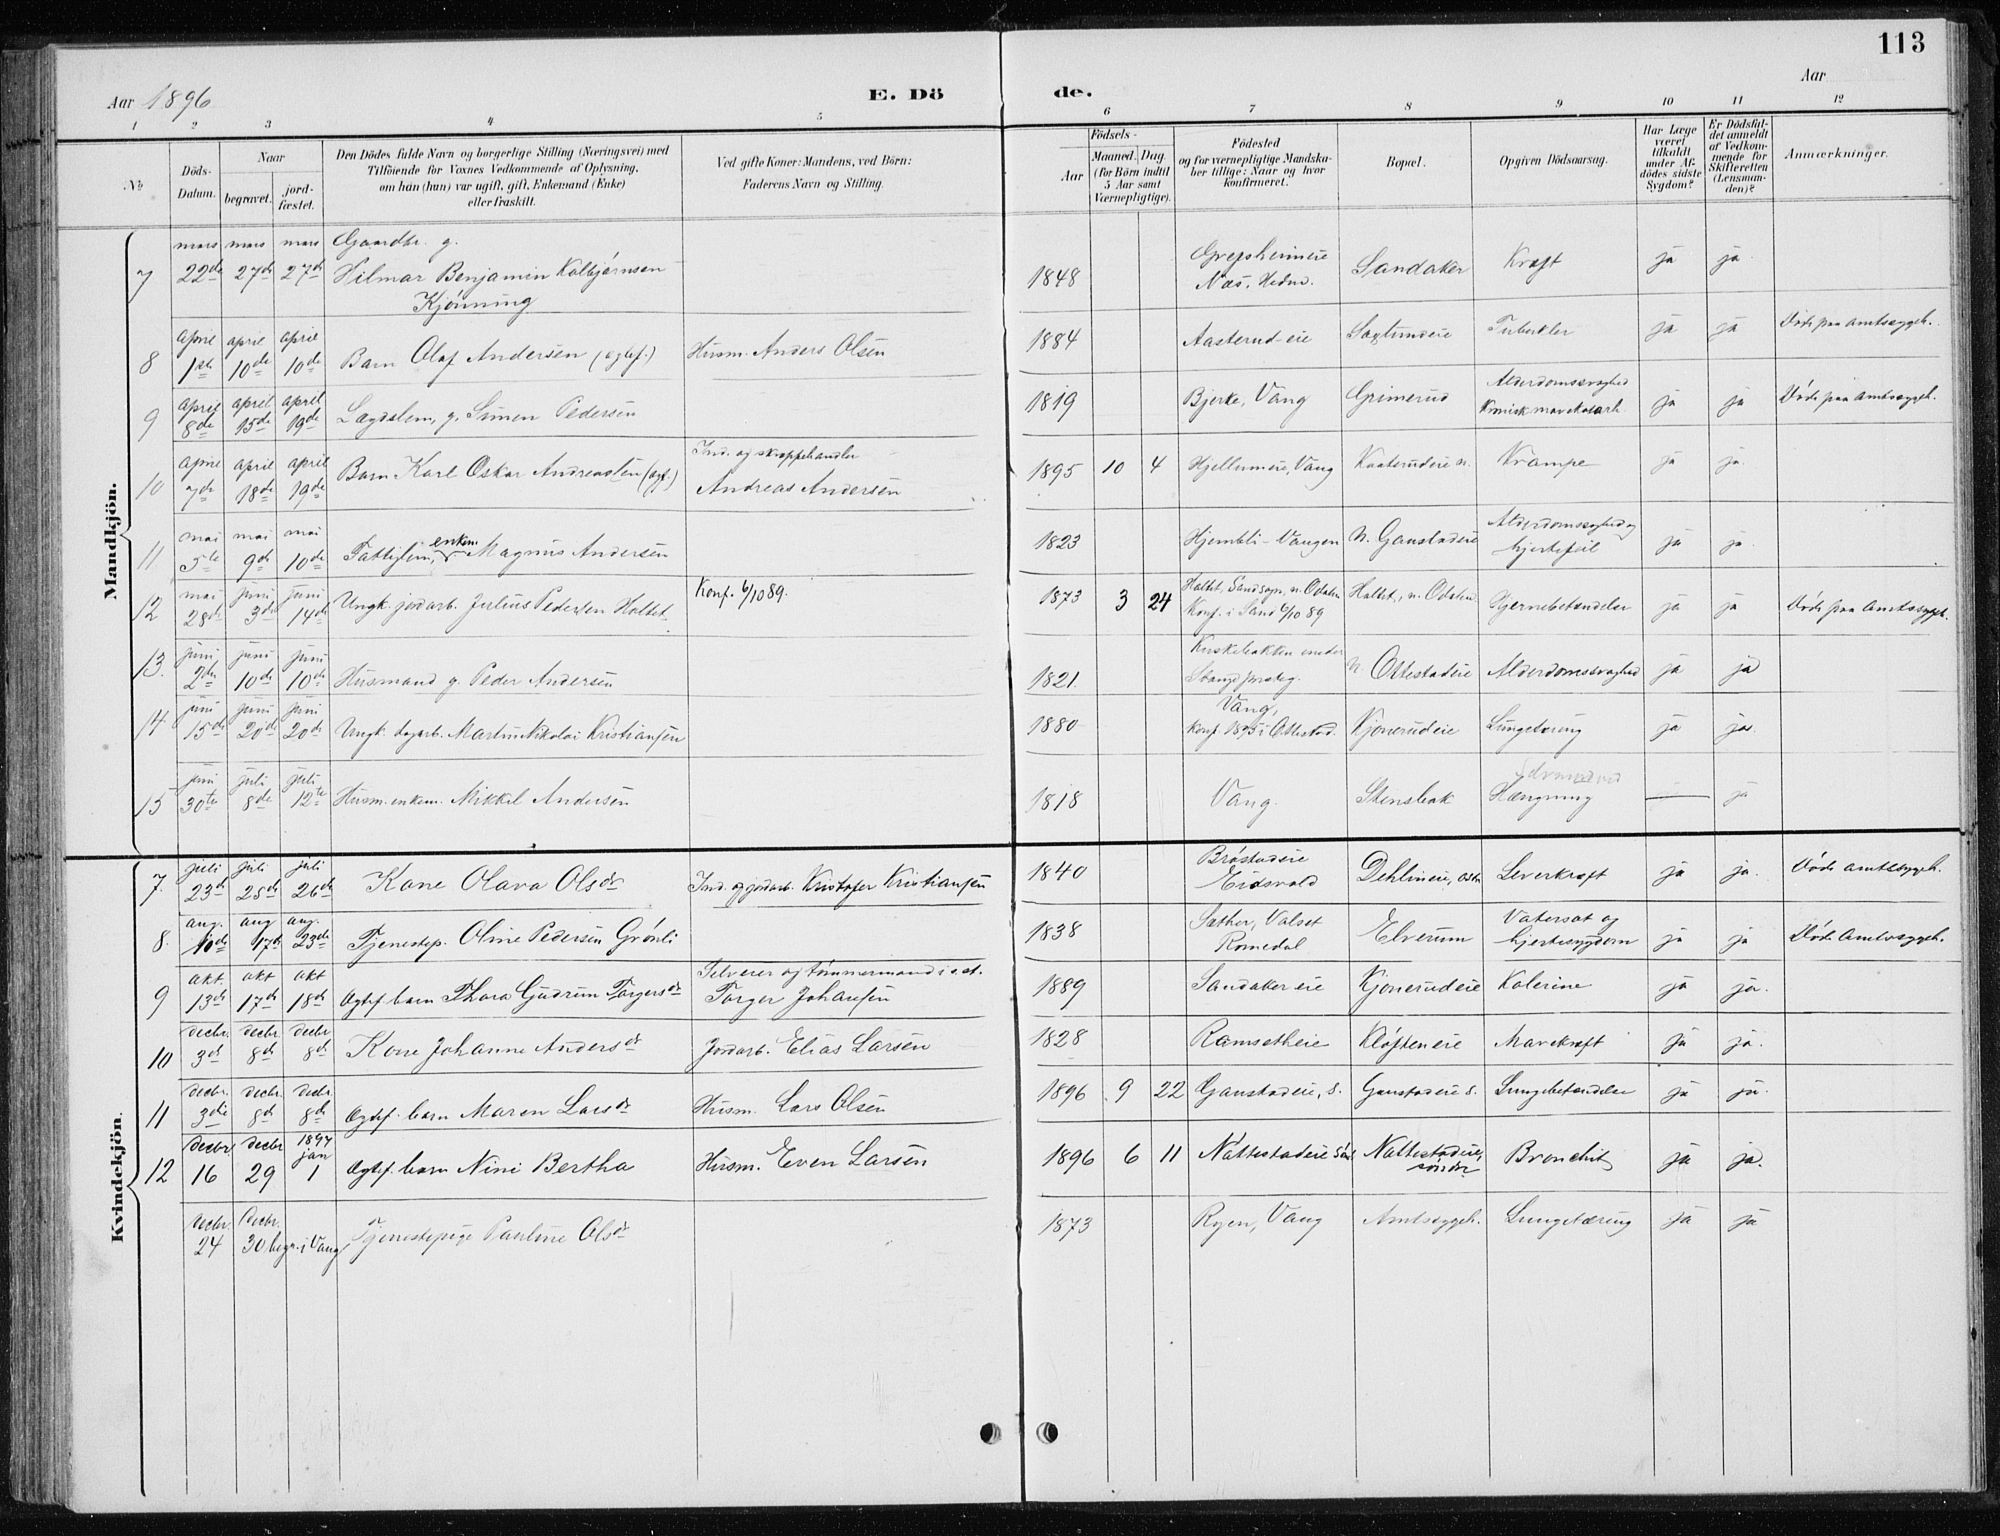 113
Aar 1896
E. Dö
de.
Aar
1 2 3 4 5 6 7 8 9 10 11 12
No
Döds-Datum.
Naar
begravet.
jord-fæstet.
Den Dödes fulde Navn og borgerlige Stilling (Næringsvei) med
Tilföiende for Voxnes Vedkommende af Oplysning,
om han (hun) var ugift, gift, Enkemand (Enke)
eller fraskilt.
Ved gifte Koner: Mandens, ved Börn:
Faderens Navn og Stilling.
Födsels-
Aar
Maaned. Dag.
(for Börn indtil
5 Aar samt
Værnepligtige).
Födested
og for værnepligtige Mandska-
ber tillige: Naar og hvor
konfirmeret.
Bopæl.
Opgiven Dödsaarsag.
Har Læge
været
tilkaldt
under Af-
dödes sidste
Sygdom?
Er Dödsfal-
det anmeldt
af Vedkom-
mende for
Skifteretten
(Lensman-
den)?
Anmærkninger.
Mandkjön.
7 mars 22de mars 27de mars 27de Gaardbr. g. Hilmar Benjamin Kolbjørnsen Kjönning 1848 Næs, Hedm. Sandaker Kræft ja ja
8 april 1ste april 10de april 10de Barn Olaf Andersen (ægtef.) Husm. Anders Olsen 1884 Aasterud-eie Tuberkler ja ja Döde paa Amtssygeh.
9 april 8de april 15de april 19de Lægdslem, g. Simen Pedersen 1819 Bjerke, Vang Grimerud Alderdomssvaghed ja ja Döde paa Amtssygeh.
10 april 7de april 18de april 19de Barn Karl Oskar Andreassen (ægt.) Ind. og skræppehandler Andreas Andersen 1895 10 4 Hjellumeie, Vang Krampe ja ja.
11 mai 5te mai 9de mai 10de Fattiglem, enkem. Magnus Andersen 1823 Hjembli-Vangen N. Gaustadeie Alderdomssvaghed og hjertefeil ja ja.
12 mai 28de juni 3de juni 14de Ungk. jordarb. Julius Pedersen Holtet Konf. 6/10 89. 1873 3 24 Holtet, Sandsogn, n. Odalen Konf. i Sand 6/10 89 Holtet, n. Odalen Hjernebetændelse ja ja Döde paa Amtssygeh.
13. juni 2den juni 10de juni 10de Husmand g. Peder Andersen 1821. Stange præsteg. N. Ottestadeie Alderdomssvaghed ja ja
14 juni 15de juni 20de juni 20de Ungk. dagarb. Martin Nikolai Kristiansen 1880 Vang, Konf. 1895 i Ottestad. Kjonerudeie Lungetæring ja ja.
15 juni 30te juli 8de juli 12te Husm. enkem. Mikkel Andersen 1818 Vang. Stensbak Selvmord ved Hængning — ja
Kvindekjön.
7. juli 23de juli 25de juli 26de Kone Olava Olsdr Ind. og jordarb. Kristofer Kristiansen 1840 Eidsvold Dehlineie, Leverkræft ja ja. Döde Amtssygeh.
8. aug. 10de aug 17de aug. 23de Tjenestep. Oline Pedersen Grönli 1838 Sæther, Valset Romedal Elverum Vatersot og hjertesygdom ja ja Döde Amtssygeh.
9 okt. 13de okt 17de okt 18de Ægtef. barn Thora Gudrun Torgersdr Selveier og tømmermand Torger Johansen 1889 Sandaker eie Kjonerudeie Kolerine ja ja.
10 decbr. 3de decbr 8de decbr 8de Kone Johanne Andersdr Jordarb. Elias Larsen 1828 Ramsetheie Kløfteneie Mavekræft ja ja.
11 decbr. 3die decbr. 8de decbr 8de Ægtef. barn Maren Larsdr Husm. Lars Olsen 1896 9 22 Gaustadeie, s. Gaustadeie s. Lungebetændelse ja ja.
12 decbr 16 decbr 29 1897 jan 1 Ægtef. barn Nini Bertha Husm. Even Larsen 1896 6 11 Nattestadeie Nattestadeie, söndre Bronchit ja ja.
decbr. 24 decbr. 30 begr. i Vang Tjenestepige Pauline Olsdr 1873 Ryen, Vang Amtssygeh. Lungetæring ja ja